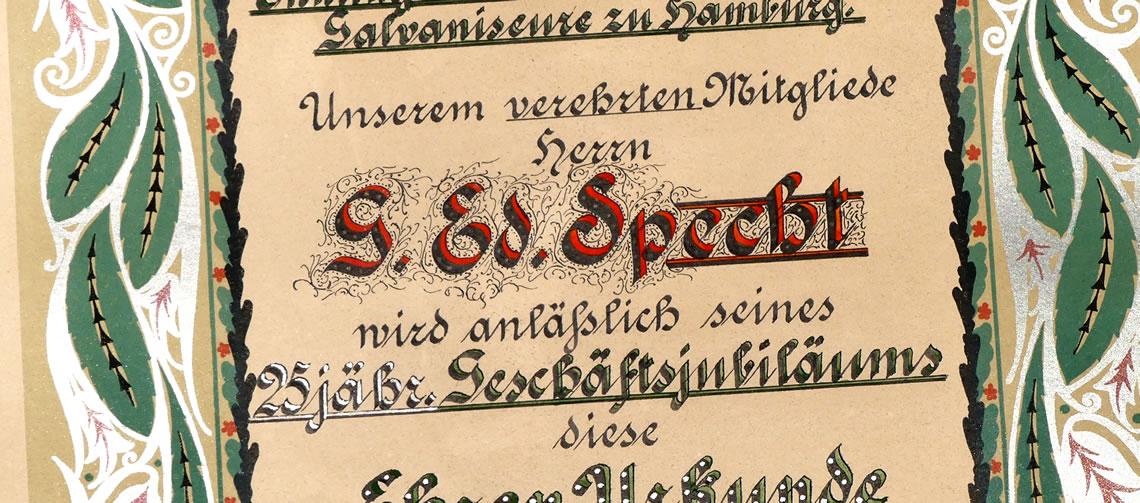 Galvaniseure zu Hamburg.
Unserem verehrten Mitgliede
Herrn
G. Ed. Specht
wird anläßlich seines
25jähr. Geschäftsjubiläums
diese
Ehren-Urkunde